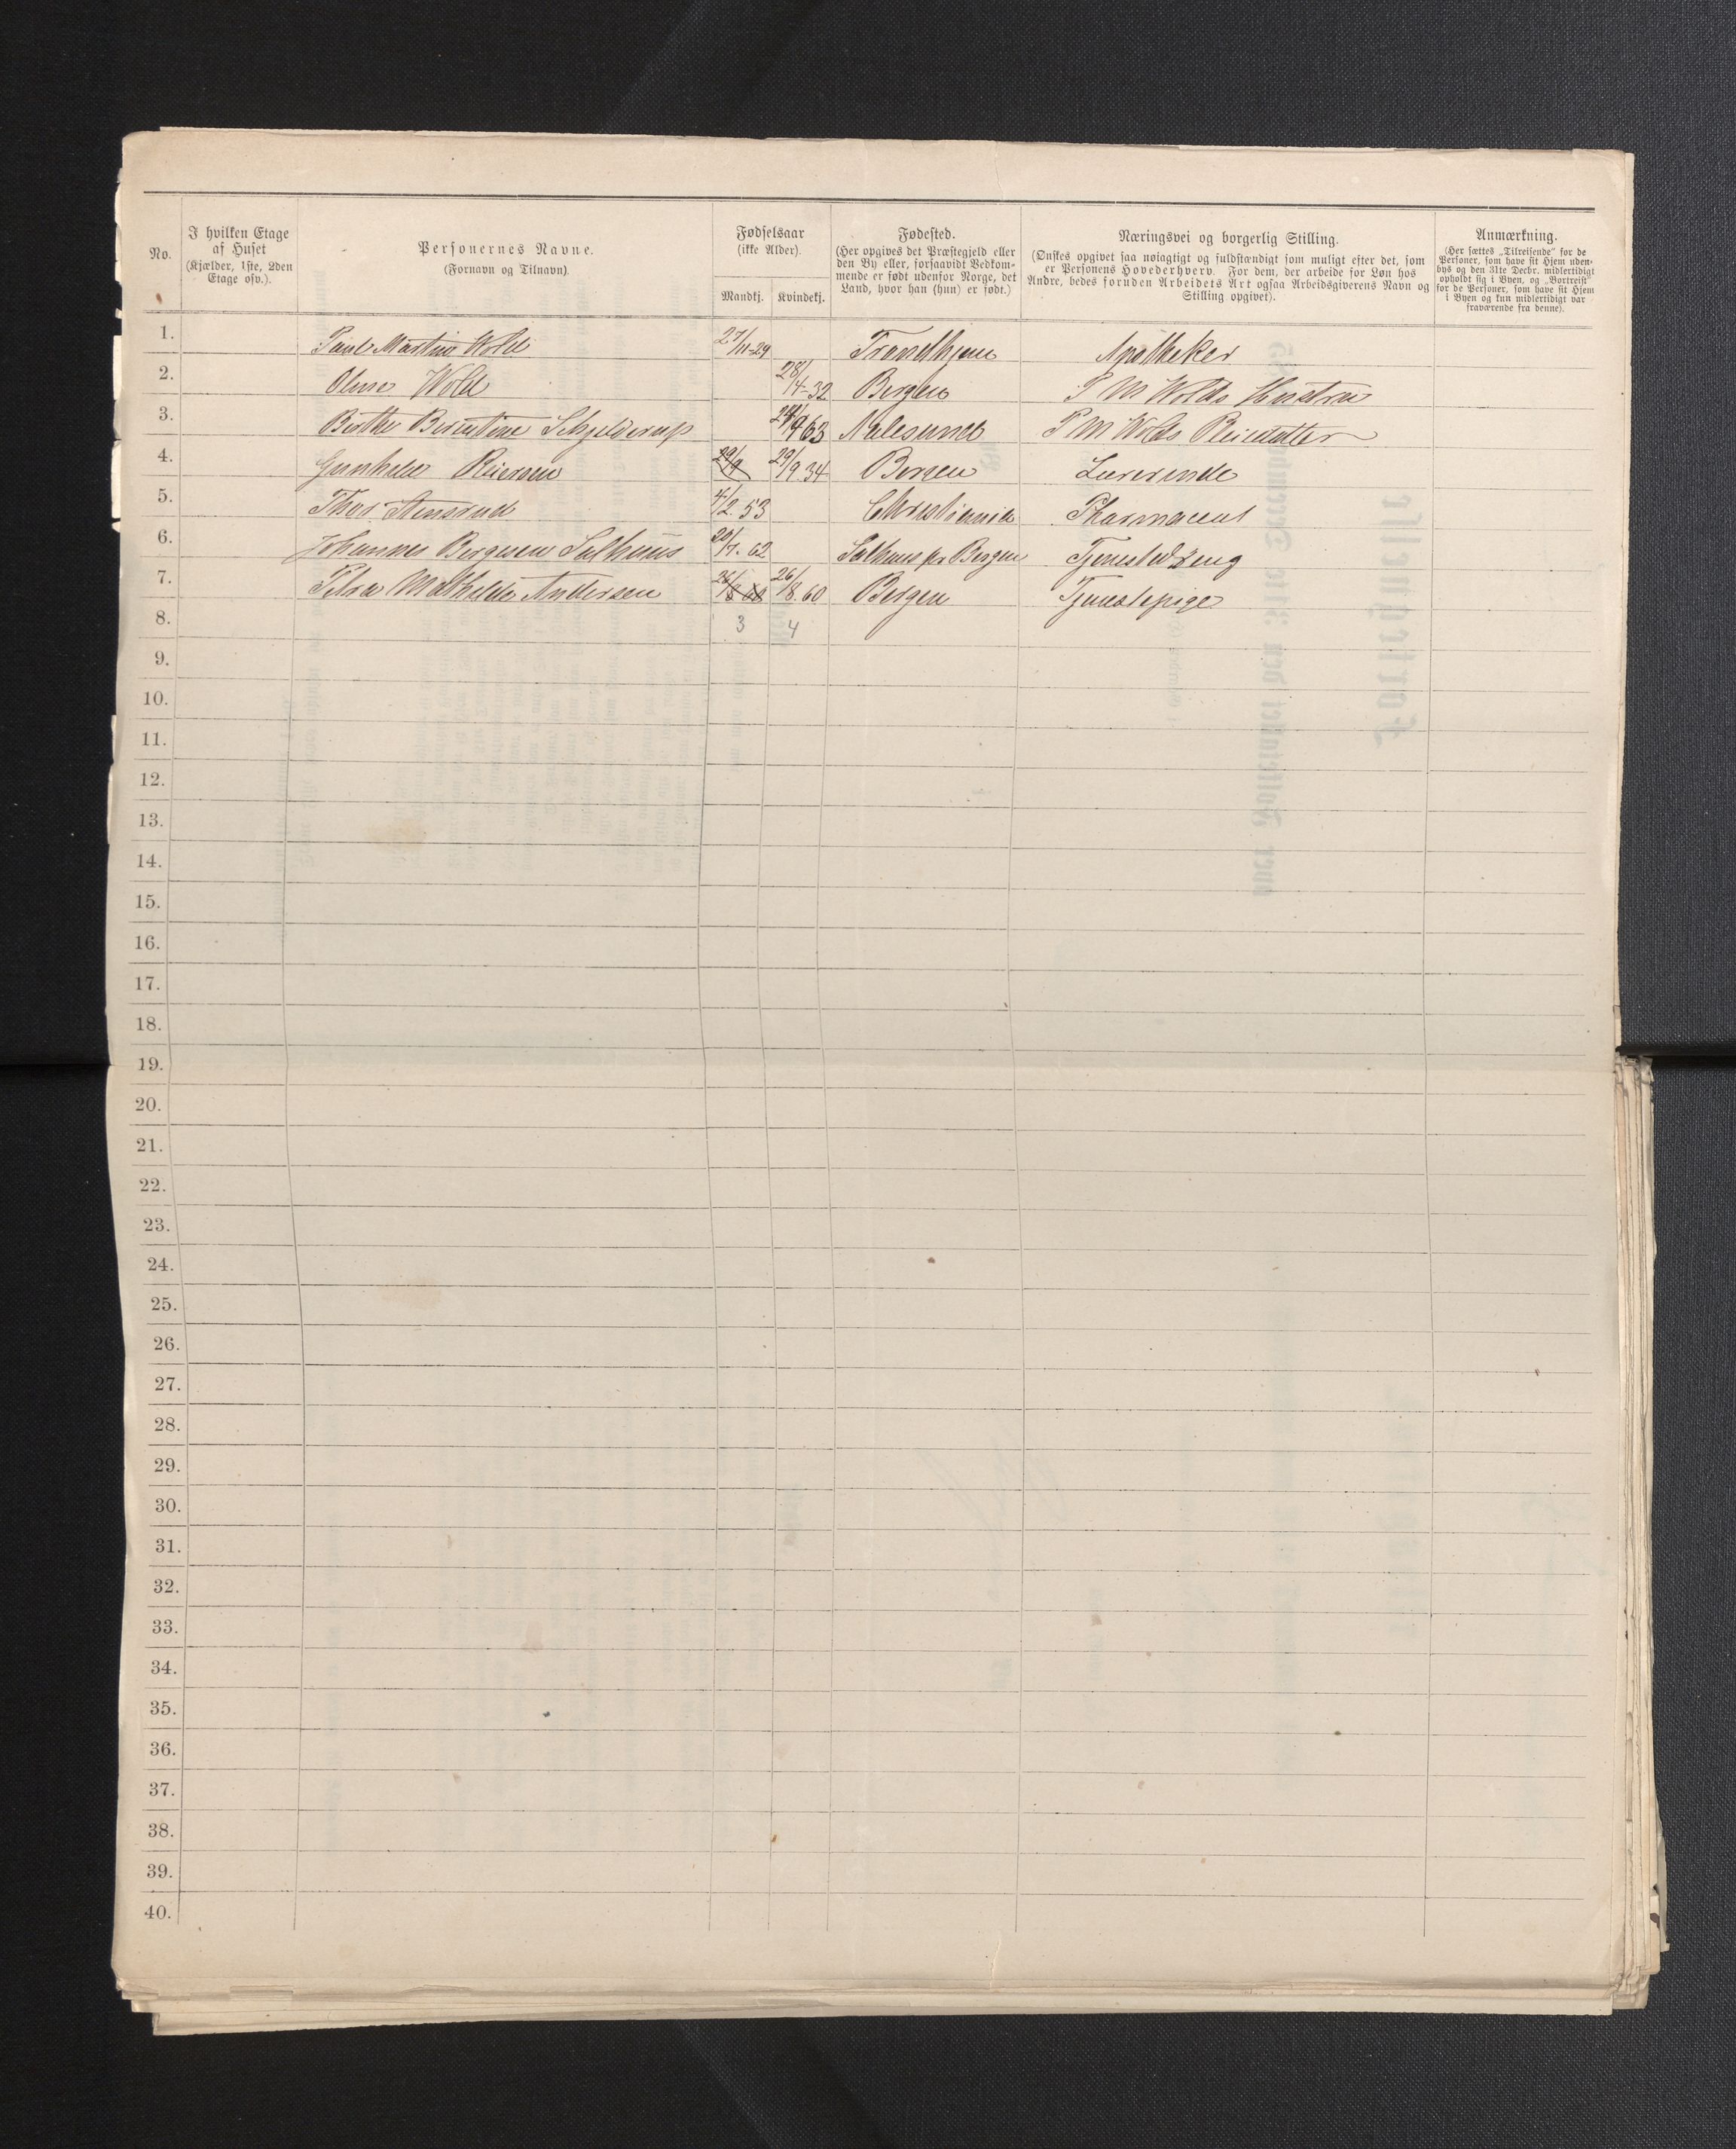 No.
I hvilken Etage
af Huset
(Kjælder, 1ste, 2den
Etage osv.).
Personernes Navne.
(Fornavn og Tilnavn).
Fødselsaar
(ikke Alder).
Mandkj. Kvindekj.
Fødested.
(Her opgives det Præstegjeld eller
den By eller, forsaavidt Vedkom-
mende er født udenfor Norge, det
Land, hvor han (hun) er født.)
Næringsvei og borgerlig Stilling.
(Ønskes opgivet saa nøiagtigt og fuldstændigt som muligt efter det, som
er Personens Hovederhverv. For dem, der arbeide for Løn hos
Andre, bedes foruden Arbeidets Art ogsaa Arbeidsgiverens Navn og
Stilling opgivet).
Anmærkning.
(Her sættes „Tilreisende" for de
Personer, som have sit Hjem uden-
bys og den 31te Decbr. midlertidigt
opholdt sig i Byen, og „Bortreist"
for de Personer, som have sit Hjem
i Byen og kun midlertidigt var
fraværende fra denne).
1. Paul Martin Wold 27/11-29 Trondhjem Apotheker
2. Oline Wold 28/4-32 Bergen P M Wolds Hustru
3. Birthe Berentine Schjelderup 9 63 Aalesund P M Wolds Pleiedatter
4. Gunhild Reiersen 29/9 29/9.34 Bergen Lærerinde
5. Thor Stensrud 4/2.53 Christiania Pharmaceut
6. Johannes Bergesen Salhuus 20/7.62 Salhuus pr Bergen Tjenestedreng
7. Petra Mathilde Andersen 26/8 60 26/8.60 Bergen Tjenestepige
8. 3 4
9.
10.
11.
12.
13.
14.
15.
16.
17.
18.
19.
20.
21.
22.
23.
24.
25.
26.
27.
28.
29.
30.
31.
32.
33.
34.
35.
36.
37.
38.
39.
40.